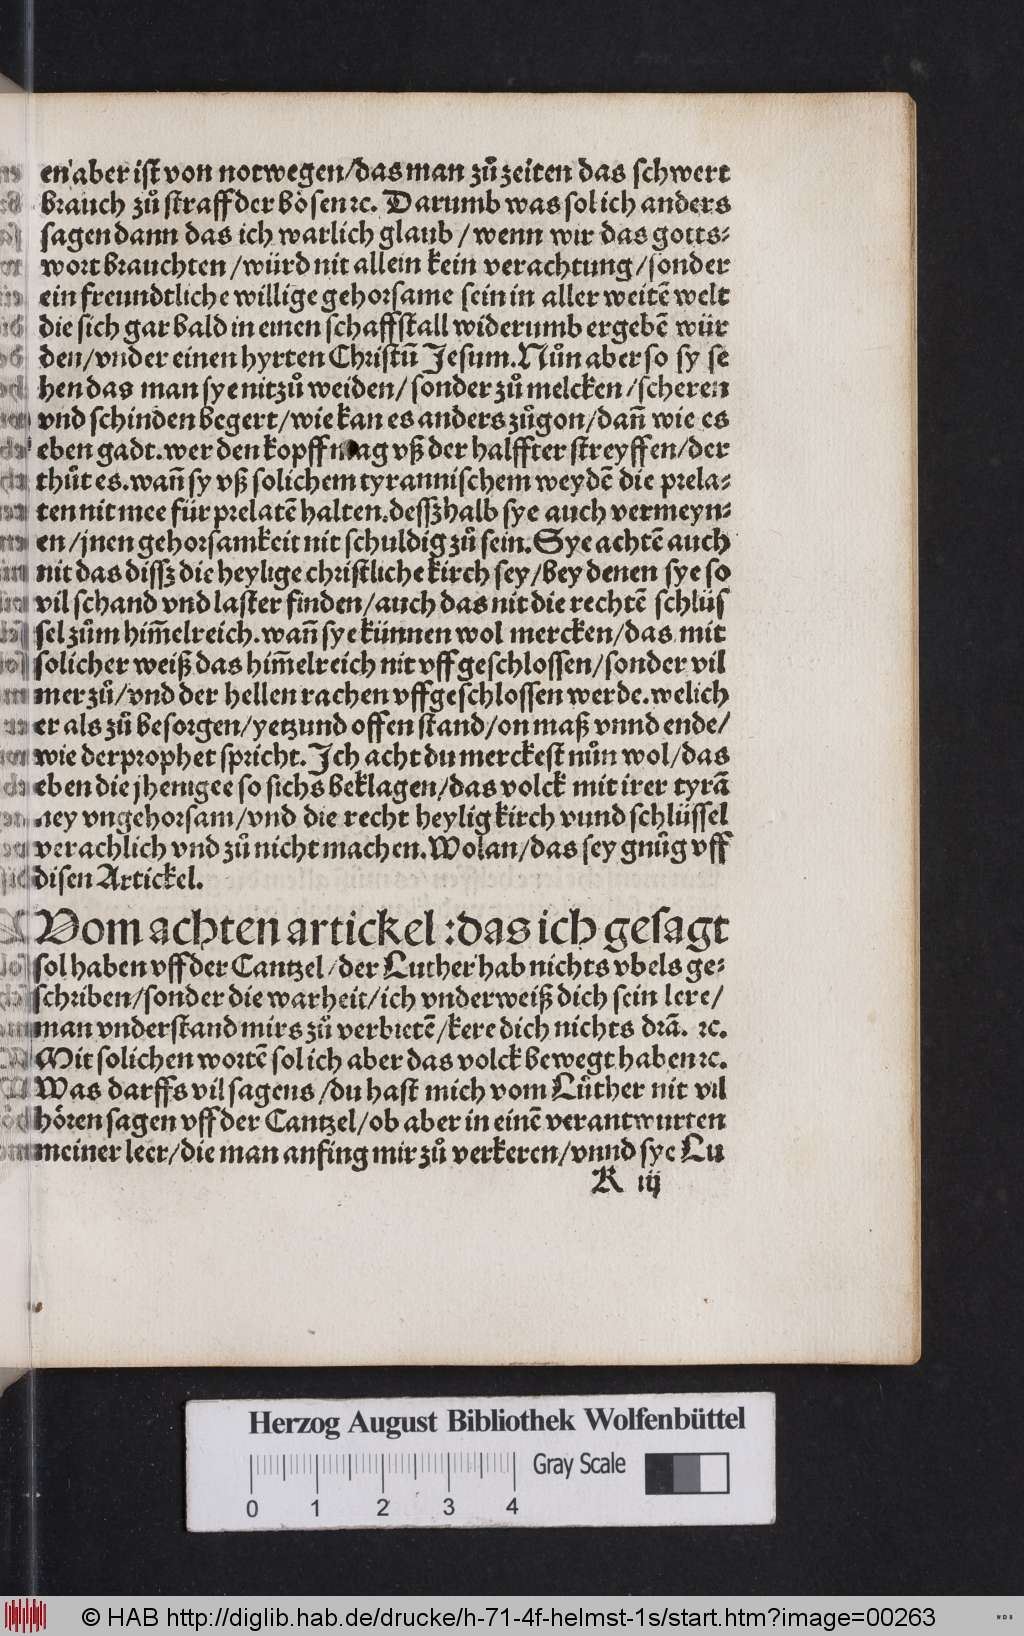 en aber ist von notwegen/das man zů zeiten das schwert
brauch zů straff der bösen ꝛc. Darumb was sol ich anders
sagen dann das ich warlich glaub / wenn wir das gotts⸗
wort brauchten /würd nit allein kein verachtung/sonder
ein freundtliche willige gehorsame sein in aller weitē welt
die sich gar bald in einen schaffstall widerumb ergebē wür
den/vnder einen hyrten Christū Jesum. Nůn aber so sy se
hen das man sye nit zů weiden/ sonder zů melcken /scheren
vnd schinden begert/wie kan es anders zůgon/dañ wie es
eben gadt. wer den kopff mag vß der halffter streyffen/der
thůt es. wañ sy vß solichem tyrannischem weydē die prela⸗
ten nit mee für prelatē halten. desßhalb sye auch vermeyn⸗
en /jnen gehorsamkeit nit schuldig zů sein. Sye achtē auch
nit das disß die heylige christliche kirch sey/bey denen sye so
vil schand vnd laster finden/auch das nit die rechtē schlüs
sel zům him̄elreich. wañ sye künnen wol mercken/das mit
solicher weiß das him̄elreich nit vffgeschlossen/sonder vil
mer zů/vnd der hellen rachen vffgeschlossen werde. welich
er als zů besorgen/yetzund offen stand/on maß vnnd ende/
wie der prophet spricht. Ich acht du merckest nůn wol/das
eben die jhenigee so sichs beklagen/das volck mit irer tyrā
ney vngehorsam/vnd die recht heylig kirch vnnd schlüssel
verachlich vnd zů nicht machen. Wolan/das sey gnůg vff
disen Artickel.
Vom achten artickel :das ich gesagt
sol haben vff der Cantzel /der Luther hab nichts vbels ge⸗
schriben/sonder die warheit/ich vnderweiß dich sein lere/
man vnderstand mirs zů verbietē/kere dich nichts drā. ꝛc.
Mit solichen wortē sol ich aber das volck bewegt haben ꝛc.
Was darffs vil sagens /du hast mich vom Lůther nit vil
hören sagen vff der Cantzel/ob aber in einē verantwurten
meiner leer/die man anfing mir zů verkeren/vnnd sye Lu
K iij
Herzog August Bibliothek Wolfenbüttel
Gray Scale
0 1 2 3 4
© HAB http://diglib.hab.de/drucke/h-71-4f-helmst-1s/start.htm?image=00263
WDB